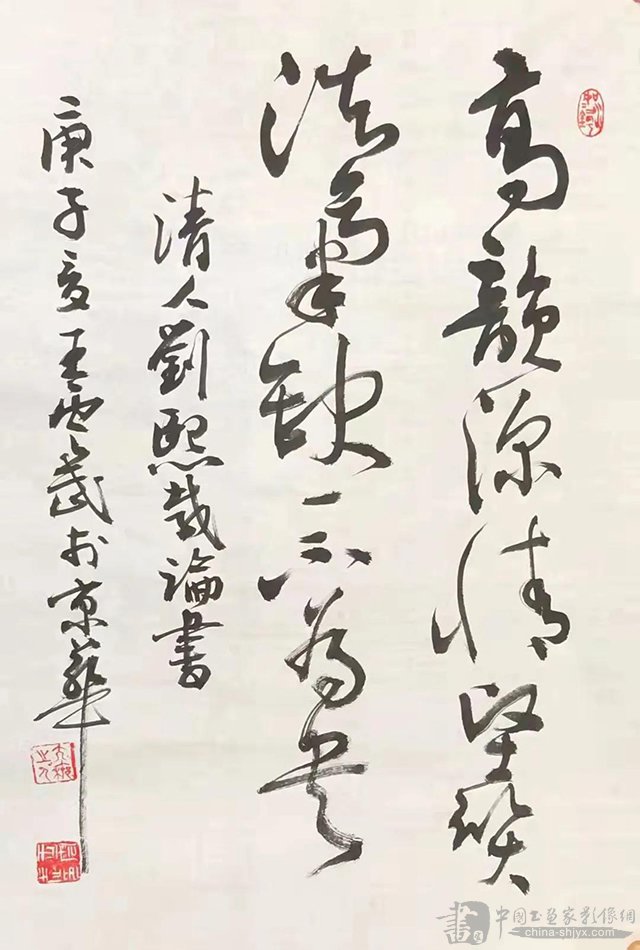 高韻深情堅質
浩氣缺一不為書
清人劉熙載論書
庚子夏王雲武於京華
中國书画家影像網
china-shjyx.com